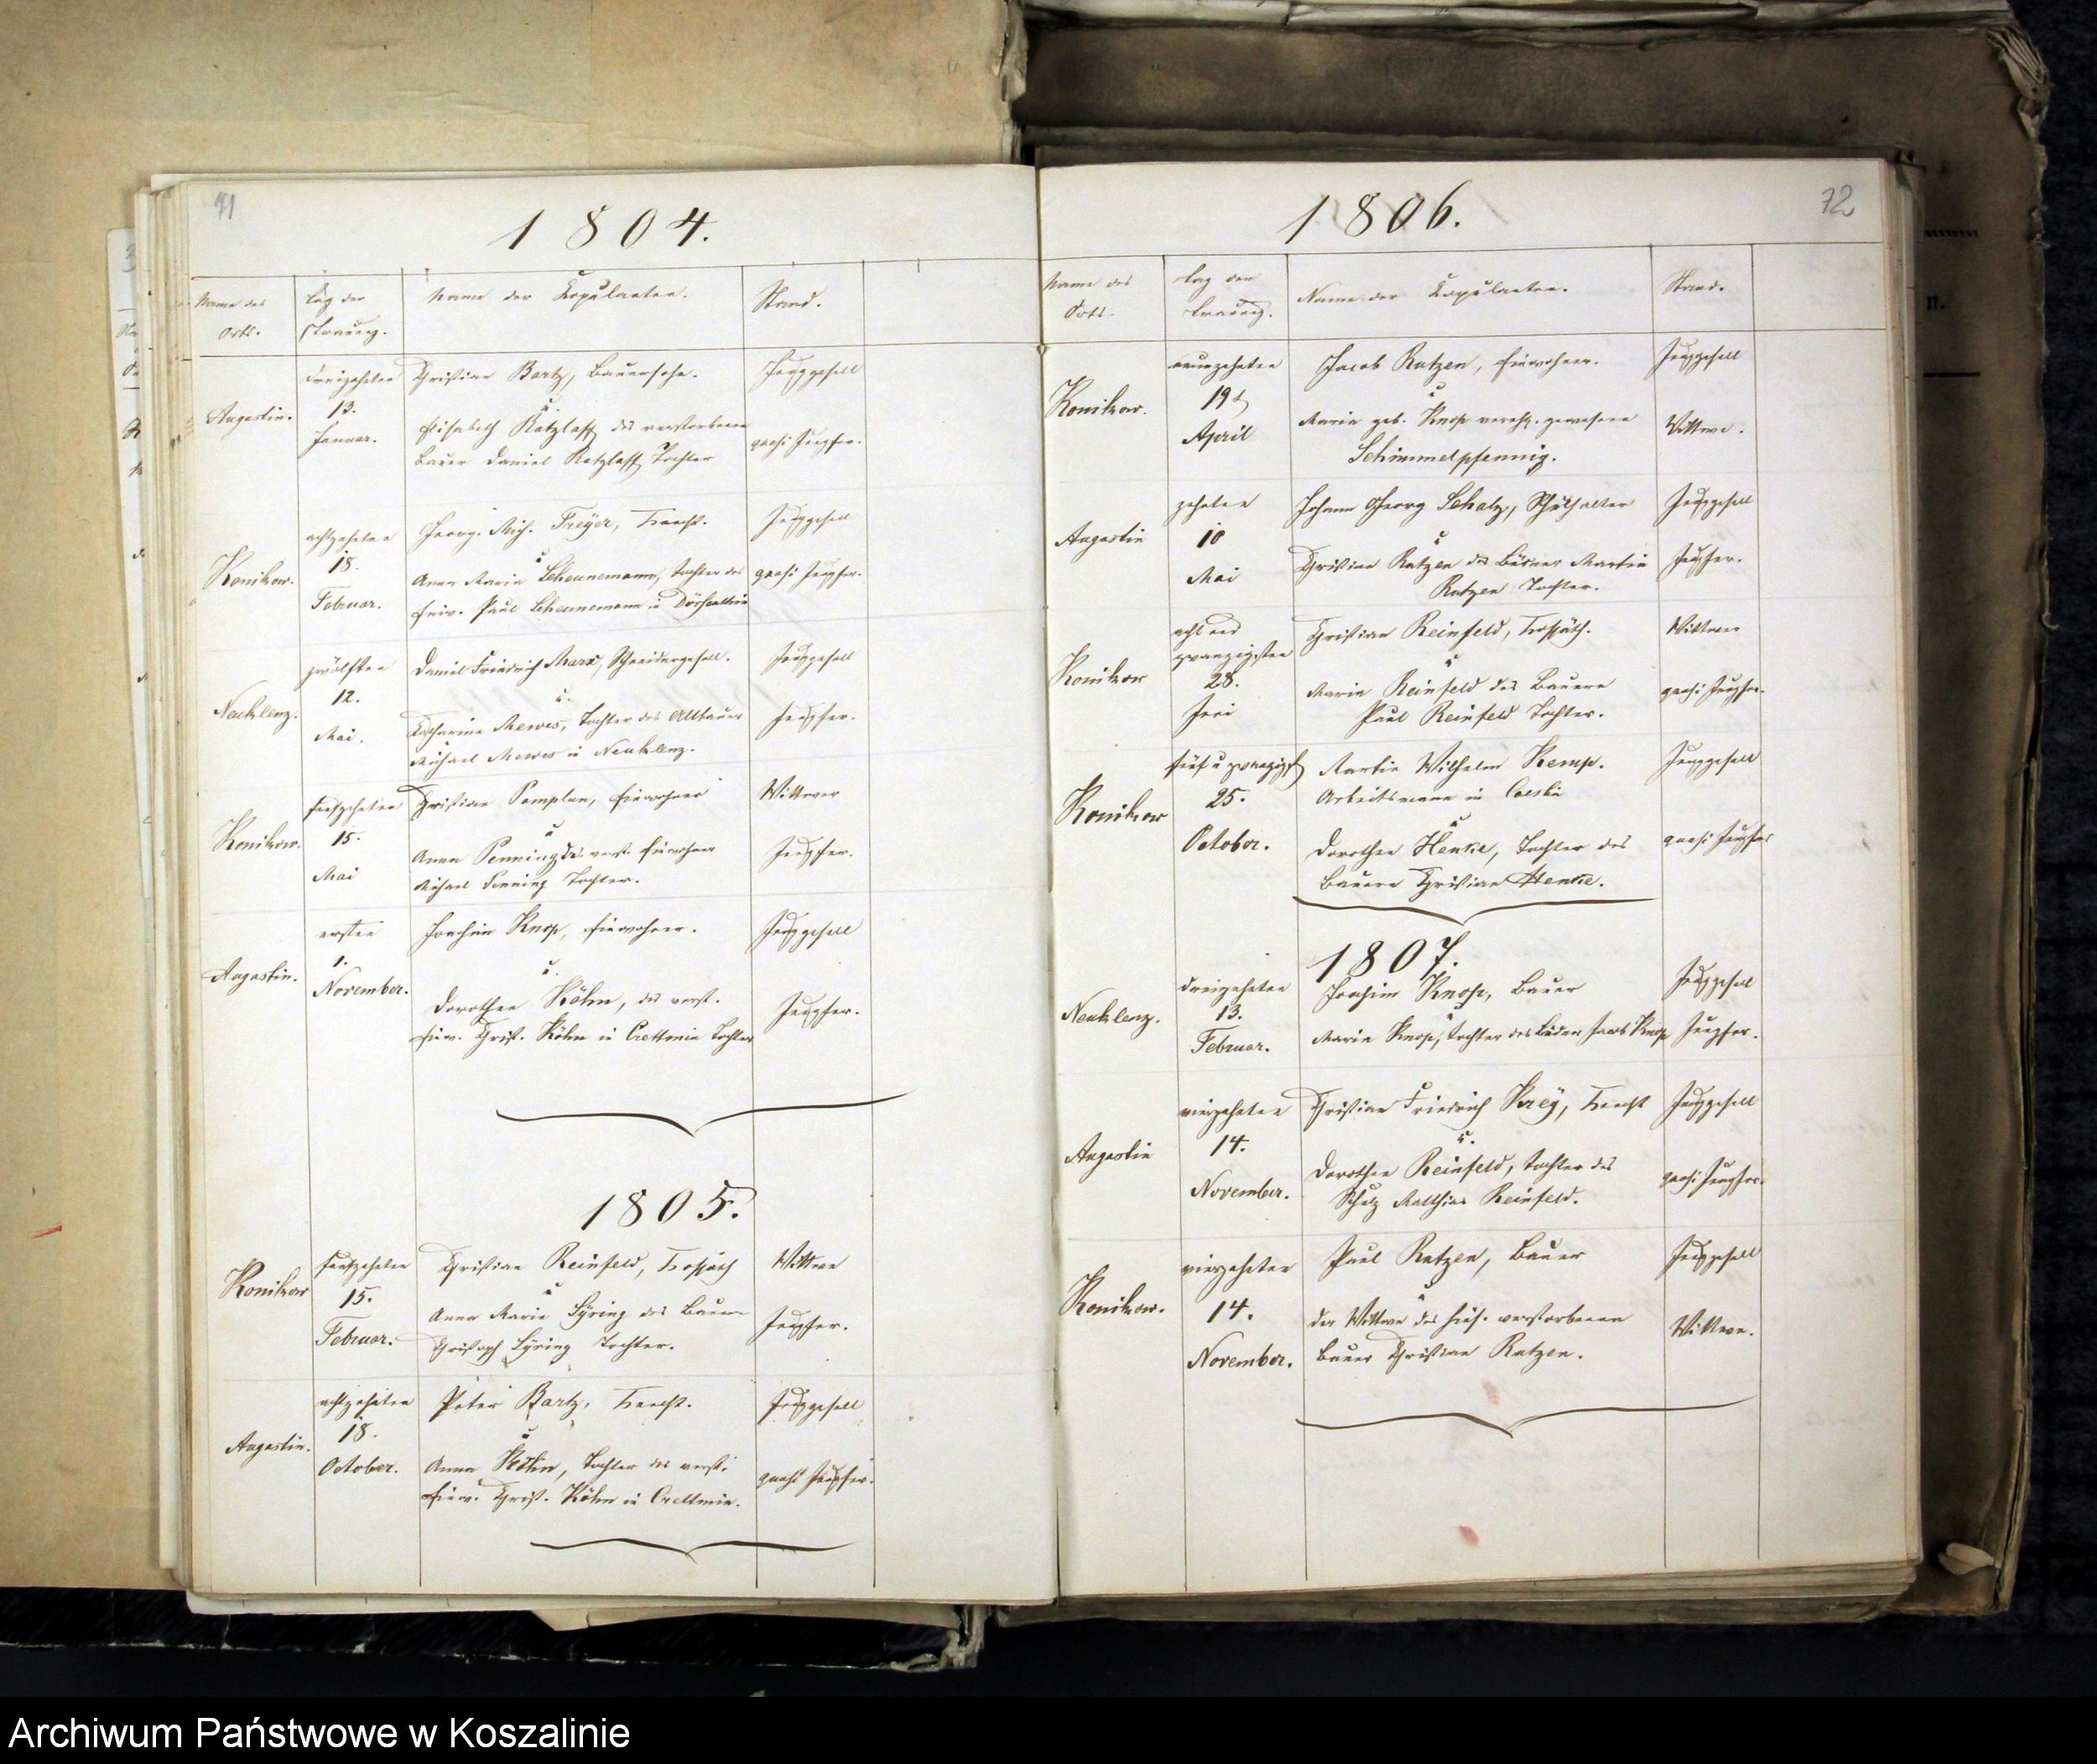 71
1804.
Name des Orts.
Tag der Trauung.
Name der Kopulanten.
Stand.
Augustin.
dreizehnten
13.
Januar.
Christian Bartz, Bauersohn.
u.
Elisabeth Ratzlaff des verstorbenen
Bauer Daniel Ratzlaff Tochter
Junggesell
quasi Jungfer.
Konikow.
achtzehnten
18.
Februar.
Georg. Mich. Freyer, Knecht.
u
Anna Maria Scheunemann, Tochter des
Einw. Paul Scheunemann in
Junggesell
quasi Jungfer.
Neuklenz.
zwölften
12.
Mai.
Daniel Friedrich Marx, Schneidergesell.
u.
Catharina Mewes, Tochter des Altbauer
Michael Mewes in Neuklenz.
Junggesell
Jungfer.
Konikow.
funfzehnten
15.
Mai
Christian Pomplun, Einwohner
u
Anna Penning des verst. Einwohner
Michael Penning Tochter.
Wittwer
Jungfer.
Augustin.
ersten
1.
November.
Joachim Knop, Einwohner.
u.
Dorothea Köhn, des verst.
Einw. Christ. Köhn in Crettmin Tochter
Junggesell
Jungfer.
1805.
Konikow
funfzehnten
15.
Februar.
Christian Reinfeld, Kossäth
u
Anna Maria Syring des Bauer
Christoph Syring Tochter.
Wittwer
Jungfer.
Augustin.
achtzehnten
18.
October.
Peter Bartz, Knecht.
u
Anna Köhn, Tochter des verst.
Einw. Christ. Köhn in Crettmin.
Junggesell
quasi Jungfer.
72
1806.
Name des Orts.
Tag der Trauung.
Name der Kopulanten.
Stand.
Konikow.
neunzehnten
19t
April
Jacob Ratzen, Einwohner.
u
Maria geb. Knop verehl. gewesene
Schimmelpfennig.
Junggesell
Wittwe.
Augustin
zehnten
10
Mai
Johann Georg Schulz, Schulhalter
u
Christine Ratzen des Büdner Martin
Ratzen Tochter.
Junggesell
Jungfer.
Konikow
acht und
zwanzigsten
28.
Juni
Christian Reinfeld, Kossäth.
u
Maria Reinfeld des Bauern
Paul Reinfeld Tochter.
Wittwer
quasi Jungfer.
Konikow
fünf u zwanzigst
25.
October.
Martin Wilhelm Kemp.
Arbeitsmann in Coeslin
u
Dorothea Henke, Tochter des
Bauern Christian Henke.
Junggesell
quasi Jungfer
1807.
Neuklenz.
dreizehnten
13.
Februar.
Joachim Knop, Bauer
u
Maria Knop, Tochter des Jacob Knop
Junggesell
Jungfer.
Augustin
vierzehnten
14.
November.
Christian Friedrich Krey, Knecht
u.
Dorothea Reinfeld, Tochter des
Schulz Matthias Reinfeld.
Junggesell
quasi Jungfer.
Konikow.
vierzehnten
14.
November.
Paul Ratzen, Bauer
u
der Wittwe des hies. verstorbenen
Bauer Christian Ratzen.
Junggesell
Wittwe.
Archiwum Państwowe w Koszalinie